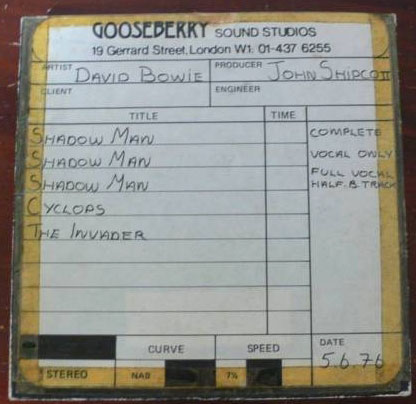 GOOSEBERRY SOUND STUDIOS
19 Gerrard Street, London W1. 01-437 6255
ARTIST DAVID BOWIE PRODUCER JOHN SHIPCOTT
CLIENT ENGINEER
TITLE TIME
SHADOW MAN COMPLETE
SHADOW MAN VOCAL ONLY
SHADOW MAN FULL VOCAL
HALF B.TRACK
CYCLOPS
THE INVADER
CURVE SPEED DATE
5.6.76
STEREO NAB 7½